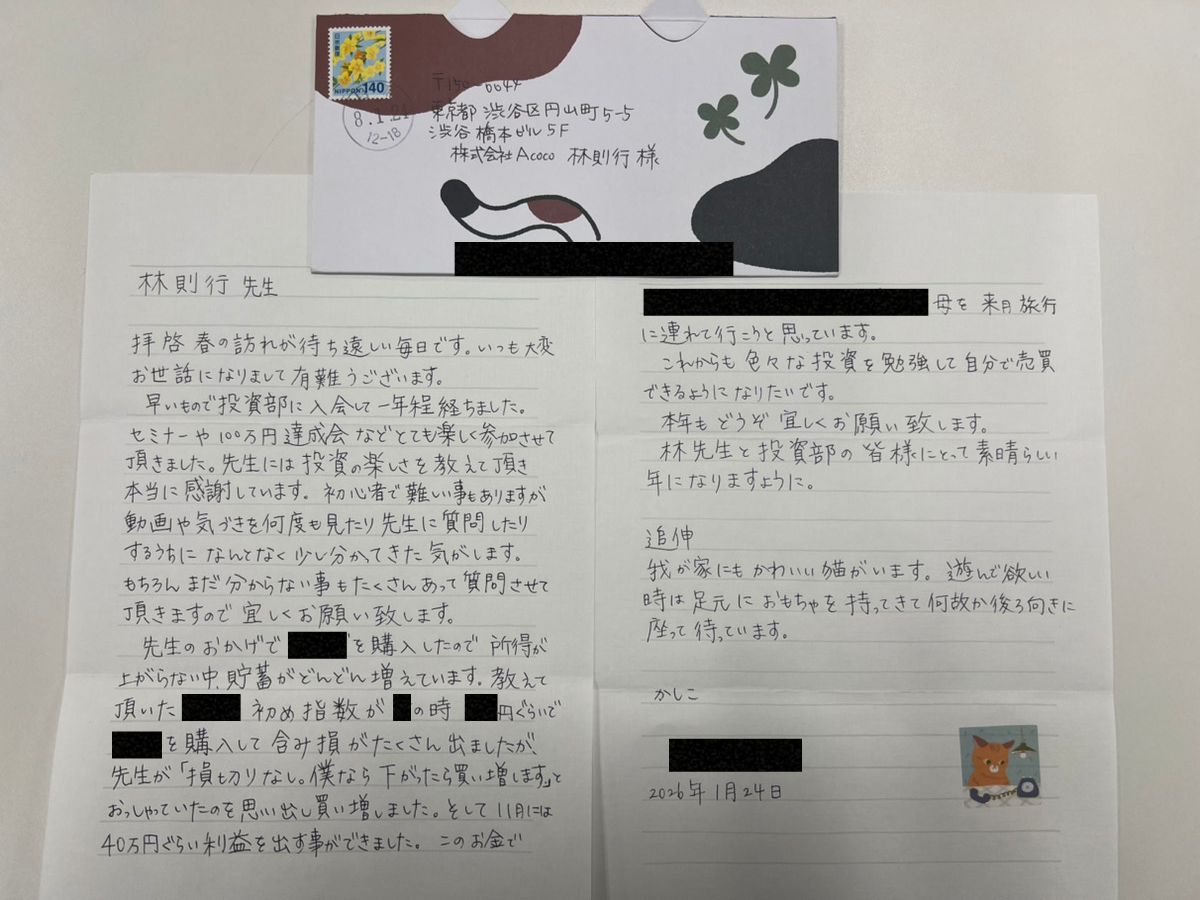 日本郵便
NIPPON 140
8.1.24
12-18
〒150-0044
東京都渋谷区円山町5-5
渋谷橋本ビル5F
株式会社Acoco 林則行様
林則行 先生
拝啓 春の訪れが待ち遠しい毎日です。いつも大変
お世話になりまして有難うございます。
早いもので投資部に入会して一年程経ちました。
セミナーや100万円達成会などとても楽しく参加させて
頂きました。先生には投資の楽しさを教えて頂き
本当に感謝しています。初心者で難しい事もありますが
動画や気づきを何度も見たり先生に質問したり
するうちになんとなく少し分かってきた気がします。
もちろんまだ分からない事もたくさんあって質問させて
頂きますので宜しくお願い致します。
先生のおかげで を購入したので所得が
上がらない中、貯蓄がどんどん増えています。教えて
頂いた 初め指数が の時 円ぐらいで
を購入して含み損がたくさん出ましたが、
先生が「損切りなし。僕なら下がったら買い増します」と
おっしゃっていたのを思い出し買い増しました。そして11月には
40万円ぐらい利益を出す事ができました。このお金で
母を来月旅行
に連れて行こうと思っています。
これからも色々な投資を勉強して自分で売買
できるようになりたいです。
本年もどうぞ宜しくお願い致します。
林先生と投資部の皆様にとって素晴らしい
年になりますように。
追伸
我が家にもかわいい猫がいます。遊んで欲しい
時は足元におもちゃを持ってきて何故か後ろ向きに
座って待っています。
かしこ
2026年1月24日